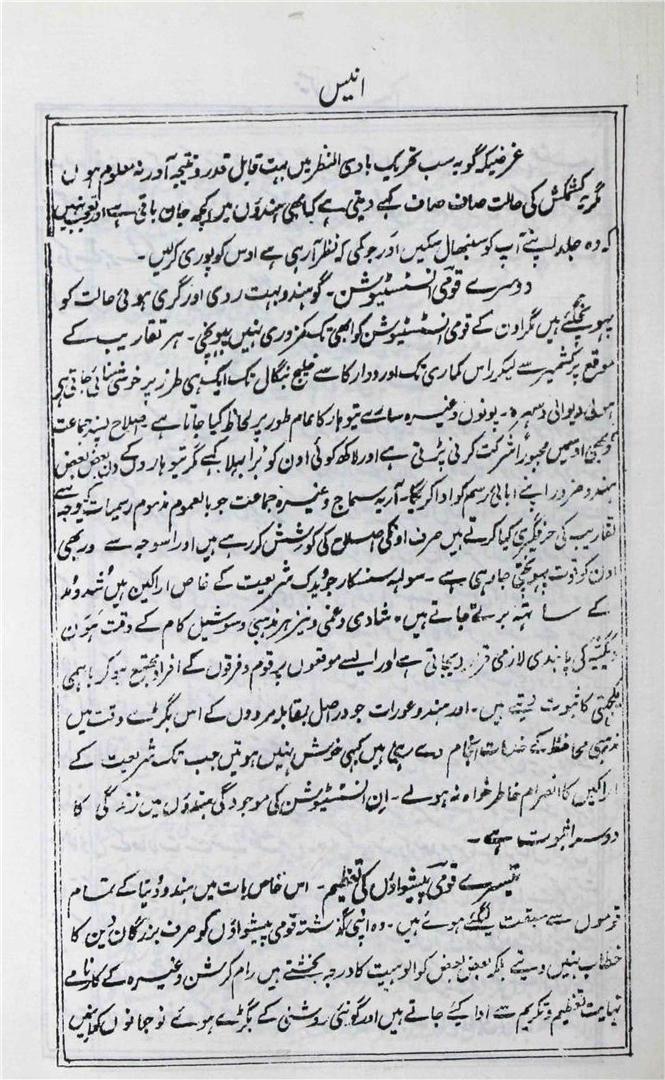 انیس
غرضیکہ گویہ سب تحریک بادی النظر میں بہت قابل قدر و نتیجہ آور نہ معلوم ہوں
مگر یہ کشمکش کی حالت صاف صاف کہے دیتی ہے کہ ابھی ہندوٴں میں کچھ جان باقی ہے اور تعجب نہیں
کہ وہ جلد اپنے آپ کو سنبھال سکیں اور جو کمی کہ نظر آرہی ہے اوس کو پوری کرلیں ۔
دوسرے قومی انسٹیٹیوشن ۔ گو ہندو بہت ردی اور گری ہوئی حالت کو
پہونچ گئے ہیں مگر اون کے قومی انسٹیٹیوشن کو ابھی تک کمزوری نہیں پہونچی ۔ ہر تقاریب کے
موقع پر کشمیر سے لیکر راس کماری تک اور دوارکا سے خلیج بنگال تک ایک ہی طرز پر خوشی منائی جاتی ہی
ہولی دیوالی دسہرہ ۔ پونوں وغیرہ سارے تیوہار کا تمام طور پر لحاظ کیا جاتا ہے اصلاح پسند جماعت
کو بھی اوسمیں مجبوراً شرکت کرنی پڑتی ہے اور لاکھ کوئی اون کو برا بھلا کہے مگر تیوہاروں کے دن بعض بعض
ہندو ضرور اپنے ابائی رسم کو ادا کریگا ۔ آریہ سماج وغیرہ جماعت جو بالعموم مذموم رسمیات کی وجہ سے
تقاریب کی حرفگیری کیا کرتے ہیں صرف اونکی اصلاح کی کوشش کر رہے ہیں اور اسوجہ سے اور بھی
اون کو قوت پہونچتی جا رہی ہے ۔ سولہ سنسکار جو ویدک شریعت کے خاص اراکین ہیں شد و مد
کے ساتھ برتے جاتے ہیں ۔ شادی و غمی و نیز ہر مذہبی و سوشیل کام کے وقت ہَوَن
یگیہ کی پابندی لازمی قرار دیجاتی ہے اور ایسے موقعوں پر قوم و فرقوں کے افراد مجتمع ہو کر باہمی
یکجہتی کا ثبوت دیتے ہیں ۔ اور ہندو عورات جو دراصل بمقابلہ مردوں کے اس بگڑے وقت میں
مذہبی محافظ کے خدمات انجام دے رہی ہیں کبھی خوش نہیں ہوتیں جب تک شریعت کے
اراکین کا انصرام خاطر خواہ نہ ہولے ۔ ان انسٹیٹیوشن کی موجودگی ہندوٴں میں زندگی کا
دوسرا ثبوت ہے ۔
تیسرے قومی پیشواوٴں کی تعظیم ۔ اس خاص بات میں ہندو دُنیا کے تمام
قوموں سے سبقت لیگئے ہوئے ہیں ۔ وہ اپنی گذشتہ قومی پیشواوٴں کو صرف بزرگان دین کا
خطاب نہیں دیتے بلکہ بعض بعض کو الوہیت کا درجہ بخشتے ہیں رام کرشن وغیرہ کے کارنامے
نہایت تعظیم و تکریم سے ادا کیے جاتے ہیں اور گو نئی روشنی کے بگڑے ہوئے نوجوانوں کو انہیں